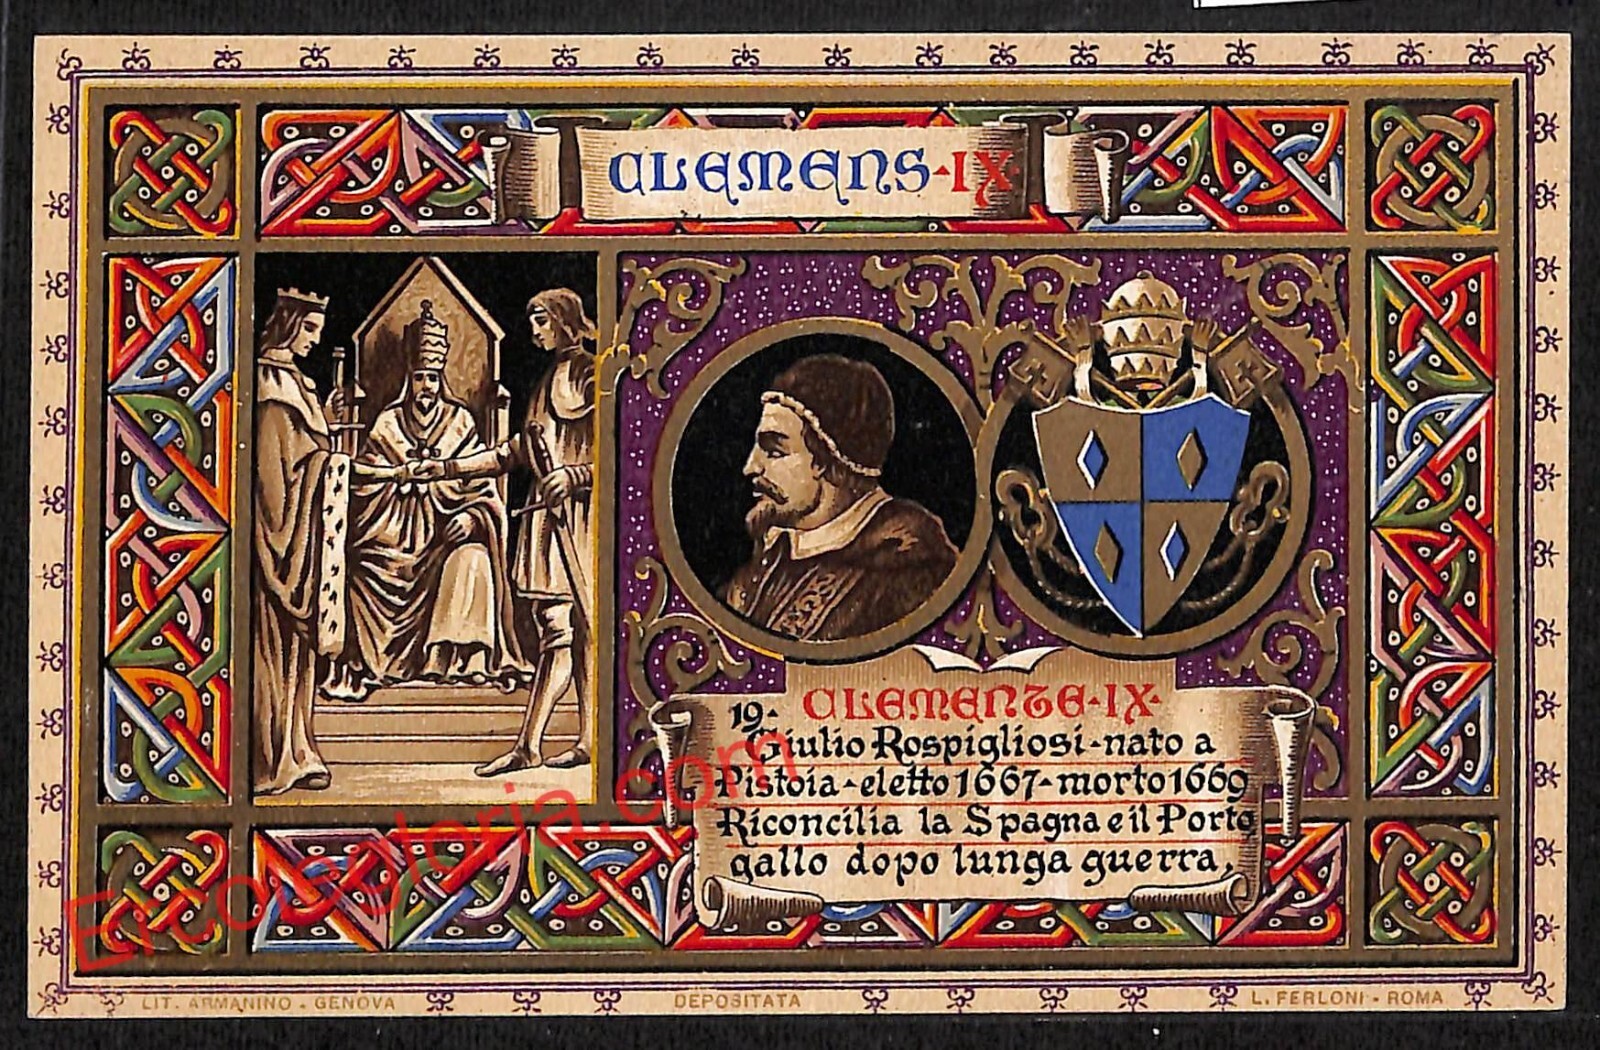 CLEMENS·IX
19· CLEMENTE·IX·
Giulio Rospigliosi-nato a
Pistoia-eletto 1667-morto 1669
Riconcilia la Spagna e il Porto
gallo dopo lunga guerra.
Ercolegloria.com
LIT. ARMANINO - GENOVA
DEPOSITATA
L. FERLONI - ROMA